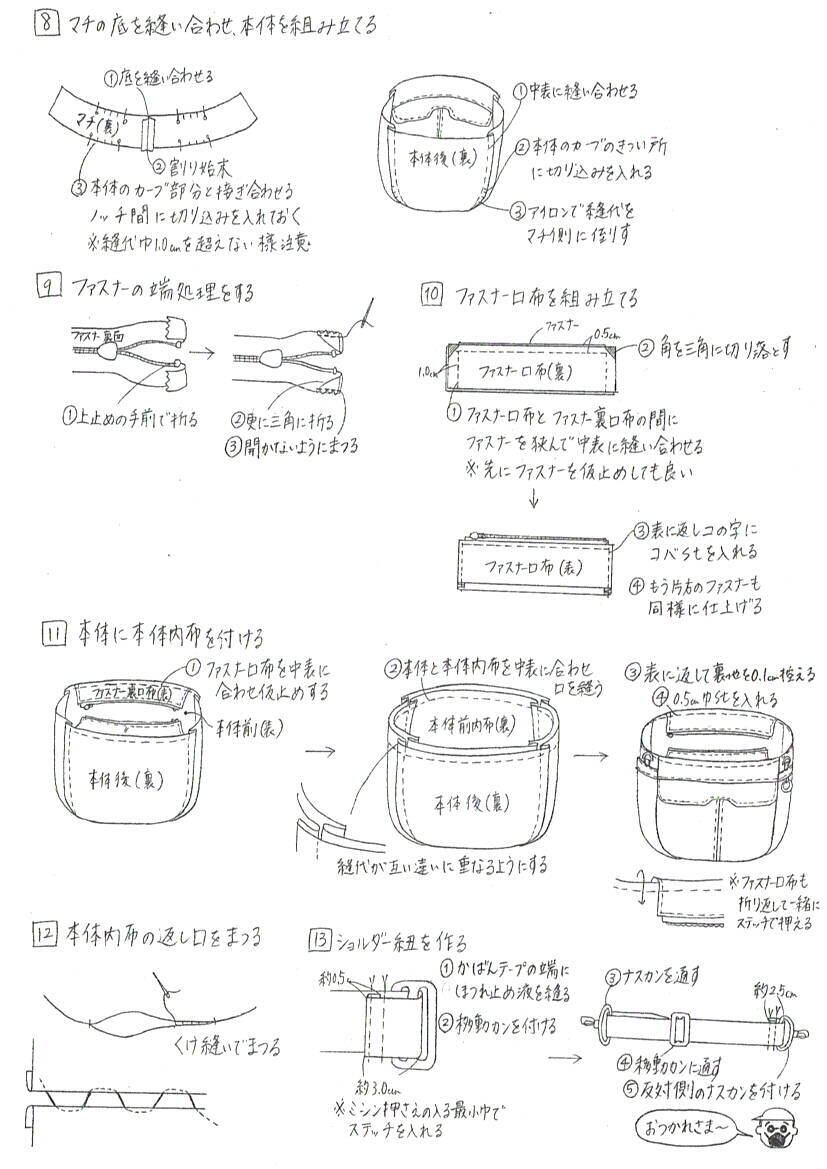 8 マチの底を縫い合わせ、本体を組み立てる
①底を縫い合わせる
マチ(裏)
②割り始末
③本体のカーブ部分と接ぎ合わせる
ノッチ間に切り込みを入れておく
※縫代巾1.0cmを超えない様注意
①中表に縫い合わせる
本体後(裏)
②本体のカーブのきつい所
に切り込みを入れる
③アイロンで縫代を
マチ側に倒す
9 ファスナーの端処理をする
ファスナー裏面
①上止めの手前で折る
②更に三角に折る
③開かないようにまつる
10 ファスナー口布を組み立てる
ファスナー
0.5cm
1.0cm
ファスナー口布(裏)
②角を三角に切り落とす
①ファスナー口布とファスナー裏口布の間に
ファスナーを挟んで中表に縫い合わせる
※先にファスナーを仮止めしても良い
ファスナー口布(表)
③表に返しコの字に
コバstを入れる
④もう片方のファスナーも
同様に仕上げる
11 本体に本体内布を付ける
①ファスナー口布を中表に
合わせ仮止めする
ファスナー裏口布(表)
本体前(表)
本体後(裏)
②本体と本体内布を中表に合わせ
口を縫う
本体前内布(裏)
本体後(裏)
縫代が互い違いに重なるようにする
③表に返して裏地を0.1cm控える
④0.5cm巾stを入れる
※ファスナー口布も
折り返して一緒に
ステッチで押える
12 本体内布の返し口をまつる
くけ縫いでまつる
13 ショルダー紐を作る
約0.5cm
①かばんテープの端に
ほつれ止め液を塗る
②移動カンを付ける
約3.0cm
※ミシン押さえの入る最小巾で
ステッチを入れる
③ナスカンを通す
約2.5cm
④移動カンに通す
⑤反対側のナスカンを付ける
おつかれさま〜